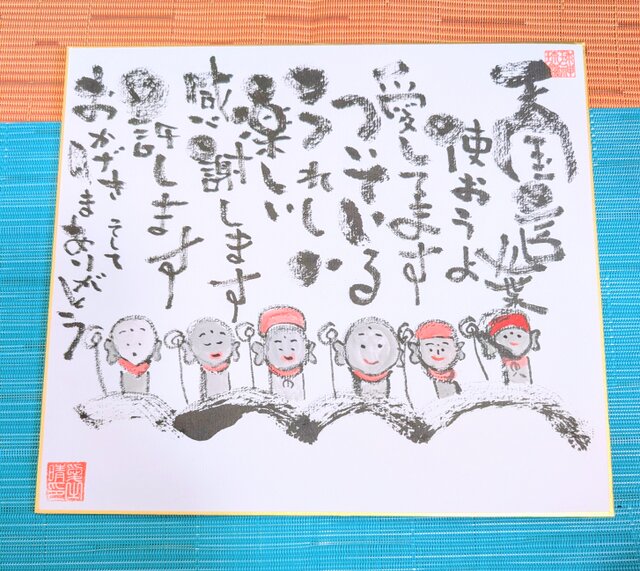 天国言葉
使おうよ
愛してます
ついている
うれしい
楽しい
感謝します
許します
そして
おかげさま ありがとう